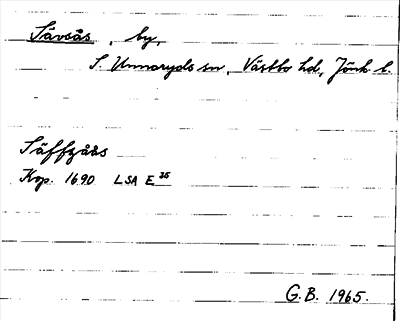 Sävsås, by,
S. Unnaryds sn, Västbo hd, Jönk l.
Säffzåås
Kop. 1690 LSA E 35
G.B. 1965.